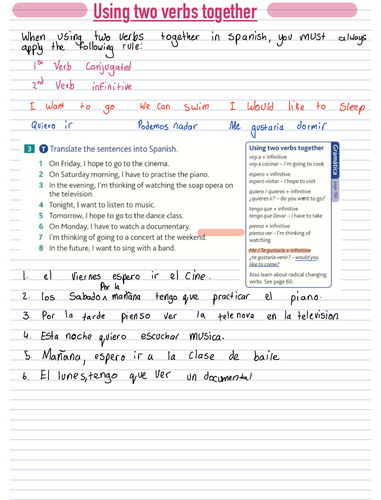 Using two verbs together
When using two verbs together in Spanish, you must always
apply the following rule:
1st Verb Conjugated
2nd Verb infinitive
I want to go We can swim I Would like to Sleep
Quiero ir Podemos nadar Me gustaria dormir
3 T Translate the sentences into Spanish.
1 On Friday, I hope to go to the cinema.
2 On Saturday morning, I have to practise the piano.
3 In the evening, I'm thinking of watching the soap opera on
the television.
4 Tonight, I want to listen to music.
5 Tomorrow, I hope to go to the dance class.
6 On Monday, I have to watch a documentary.
7 I'm thinking of going to a concert at the weekend.
8 In the future, I want to sing with a band.
Gramática
Using two verbs together
voy a + infinitive
voy a cocinar – I'm going to cook
espero + infinitive
espero visitar – I hope to visit
quiero / quieres + infinitive
¿quieres ir? – do you want to go?
tengo que + infinitive
tengo que llevar – I have to take
pienso + infinitive
pienso ver – I'm thinking of
watching
Me / Te gustaría + infinitive
¿te gustaría venir? – would you
like to come?
Also learn about radical changing
verbs. See page 60.
1. el viernes espero ir el cine.
Por la
2. los Sabado mañana tengo que practicar el piano.
3. Por la tarde pienso ver la telenova en la television
4. Esta noche quiero escuchar musica.
5. Mañana, espero ir a la clase de baile
6. El lunes, tengo que ver un documental